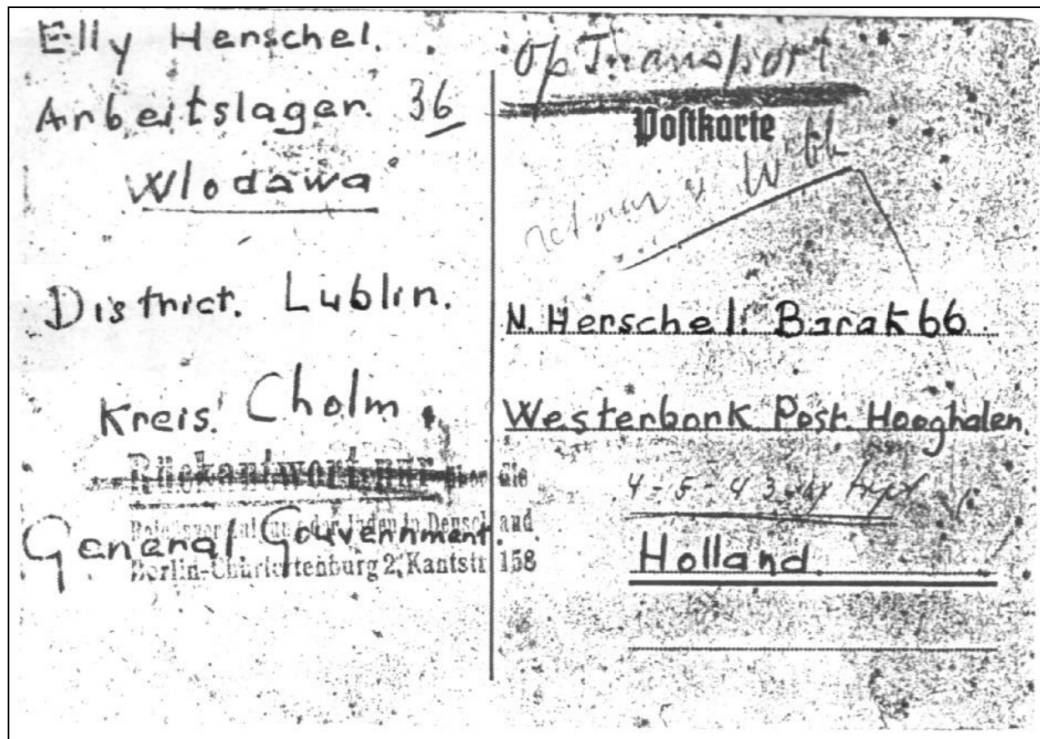 Elly Henschel.
Arbeitslager. 36
Wlodawa
District. Lublin.
Kreis. Cholm.
Rückantwort nur über die
Reichsvereinigung der Juden in Deutschland
Berlin-Charlottenburg 2, Kantstr 158
General Gouvernment.
op Transport
Postkarte
N. Herschel. Barak 66
Westerbork Post. Hooghalen.
4-5-43
Holland.